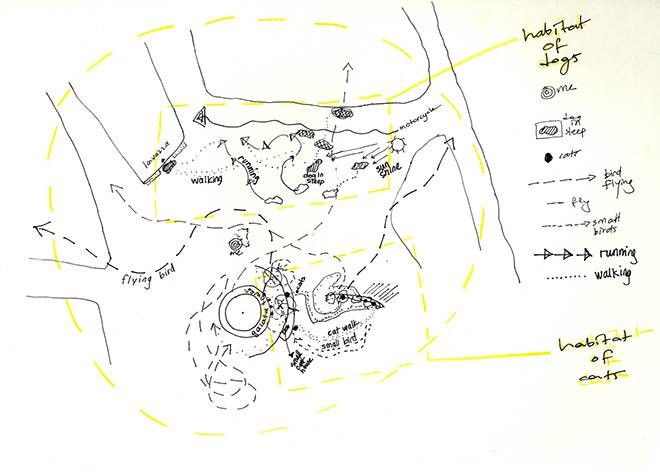 habitat
of
dogs
me
dog
in
sleep
cats
bird
flying
fly
small
birds
running
walking
habitat
of
cats
motorcycle
lavazza
walking
running
dog in
sleep
sun
shine
me
flying bird
cat walk
small bird